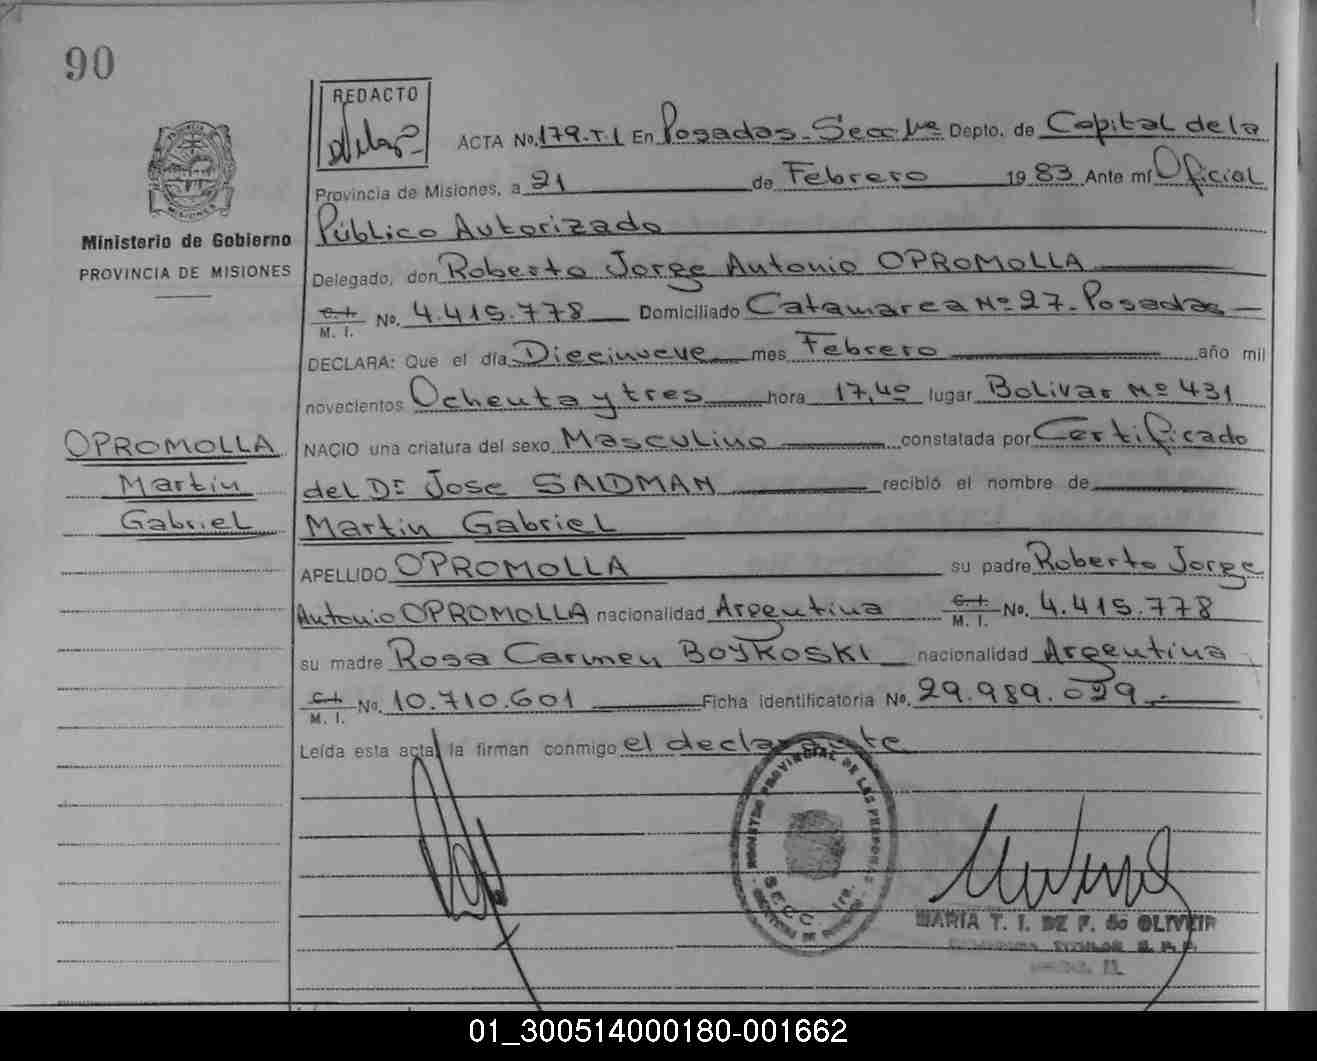 90
REDACTO
ACTA No. 179.T.1 En Posadas-Secc 1ra Depto. de Capital de la
Provincia de Misiones, a 21 de Febrero 1983 Ante mí Oficial
Público Autorizado
Ministerio de Gobierno
PROVINCIA DE MISIONES
Delegado, don Roberto Jorge Antonio OPROMOLLA
C. I.
M. I. No. 4.415.778 Domiciliado Catamarca Nº 27-Posadas
DECLARA: Que el día Diecinueve mes Febrero año mil
novecientos Ochenta y tres hora 17,40 lugar Bolivar Nº 431
OPROMOLLA
Martin
Gabriel
NACIO una criatura del sexo Masculino constatada por Certificado
del Dr Jose SAIDMAN recibió el nombre de
Martin Gabriel
APELLIDO OPROMOLLA su padre Roberto Jorge
Antonio OPROMOLLA nacionalidad Argentina C. I.
M. I. No. 4.415.778
su madre Rosa Carmen BOYKOSKI nacionalidad Argentina
C. I.
M. I. No. 10.710.601 Ficha identificatoria No. 29.989.029
Leída esta acta, la firman conmigo el declarante
REGISTRO PROVINCIAL DE LAS PERSONAS
SECC. 1ra.
MARIA T. I. DE F. de OLIVEIR
01_300514000180-001662